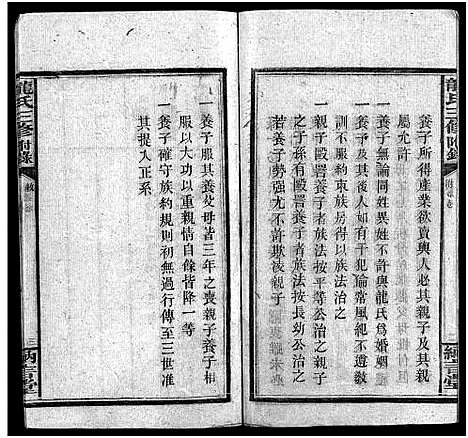 龍氏三修附錄
養子所得產業欲賣與人必其親子
屬允許
一養子無論同姓異姓不許與龍氏為婚姻
一養子及其後人如有干犯倫常風紀不遵教
訓不服約束族房得以族法治之
一親子毆詈養子者族法按平等公治之親子
之子孫有毆詈養子者族法按長幼公治之
若養子勢強尤不許欺凌親子
納言堂
一養子服其養父母皆三年之喪親子養子相
服以大功以重親情自餘皆降一等
一養子確守族約規則初無過行傳至三世准
其提入正系
龍氏三修附錄
三
納言堂